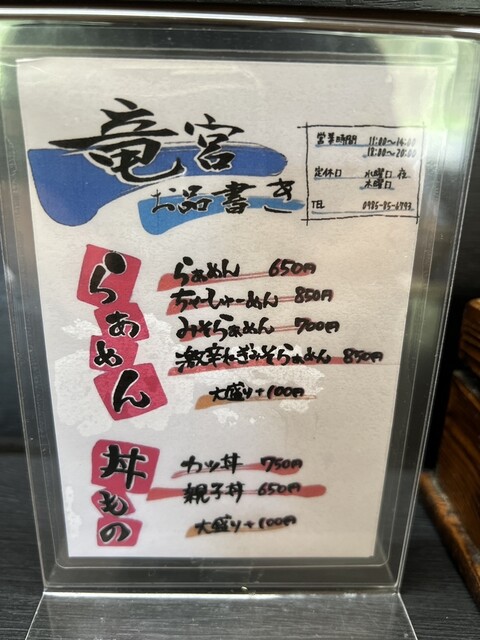 竜宮
お品書き
営業時間 11:00〜14:00
18:00〜20:00
定休日 水曜日 夜
木曜日
TEL 0985-85-6793
らぁめん
らぁめん 650円
ちゃーしゅーめん 850円
みそらぁめん 700円
激辛ねぎみそらぁめん 850円
大盛り+100円
丼もの
カツ丼 750円
親子丼 650円
大盛り+100円